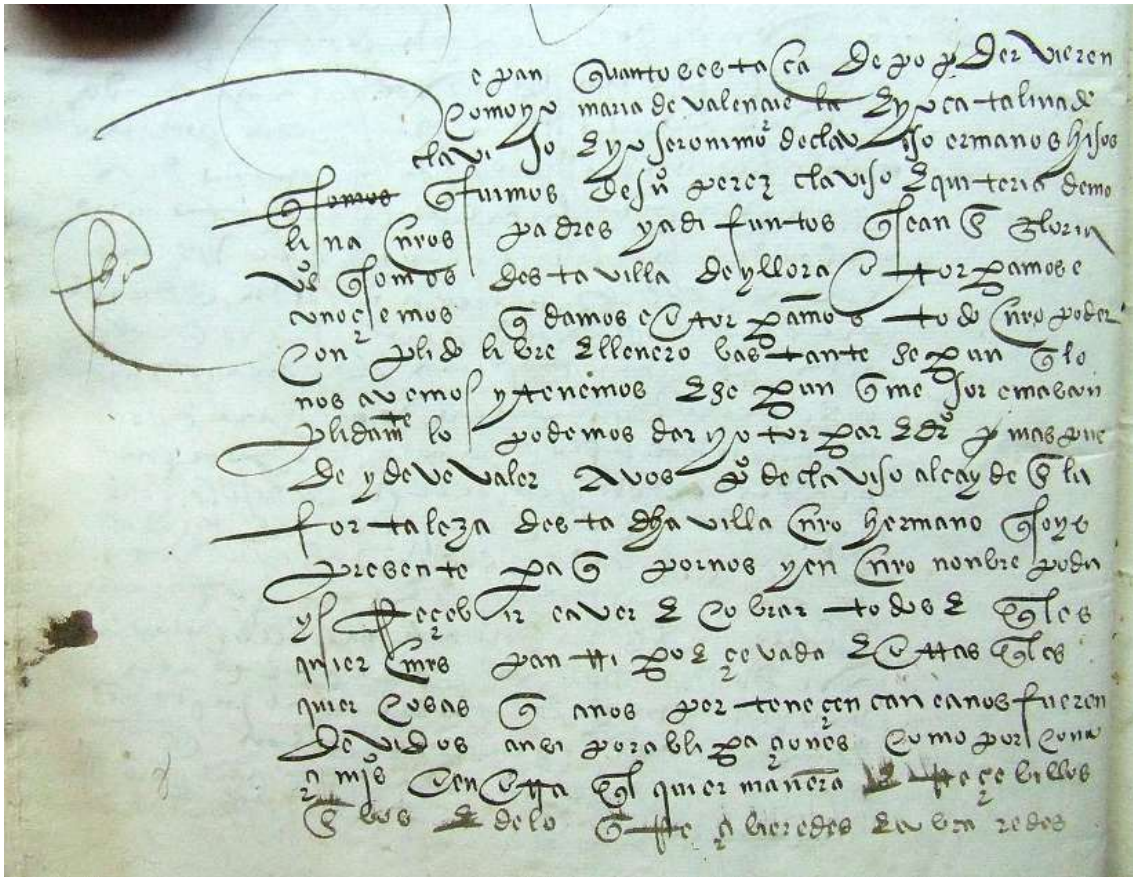 epan quantos esta carta de poder vieren
como yo maria de valençuela E yo catalina de
claviJo E yo Jeronimo de claviJo ermanos hiJos
q somos q fuimos de Ju perez claviJo E quiteria de mo
lina nros padres ya difuntos q sean en gloria
vs q somos desta villa de yllora otorgamos e
conoçemos q damos e otorgamos todo nro poder
conplido libre E llenero bastante segun q lo
nos avemos y tenemos E segun q meJor e mas con
plidamte lo podemos dar y otorgar E de dro mas pue
de y deve valer A vos po de claviJo alcayde en la
fortaleza desta dha villa nro hermano q soys
presente pa q por nos y en nro nonbre poda
ys Reçebir e aver E cobrar todos E qles
quier mrs pan trigo E çevada E otras qles
quier cosas q a nos perteneçen can e a nos fueren
devidos ansi por obligaçones como por cono
çimis o en otra ql quier manera Reçebillos
en vos E de lo q Reçibieredes E cobraredes